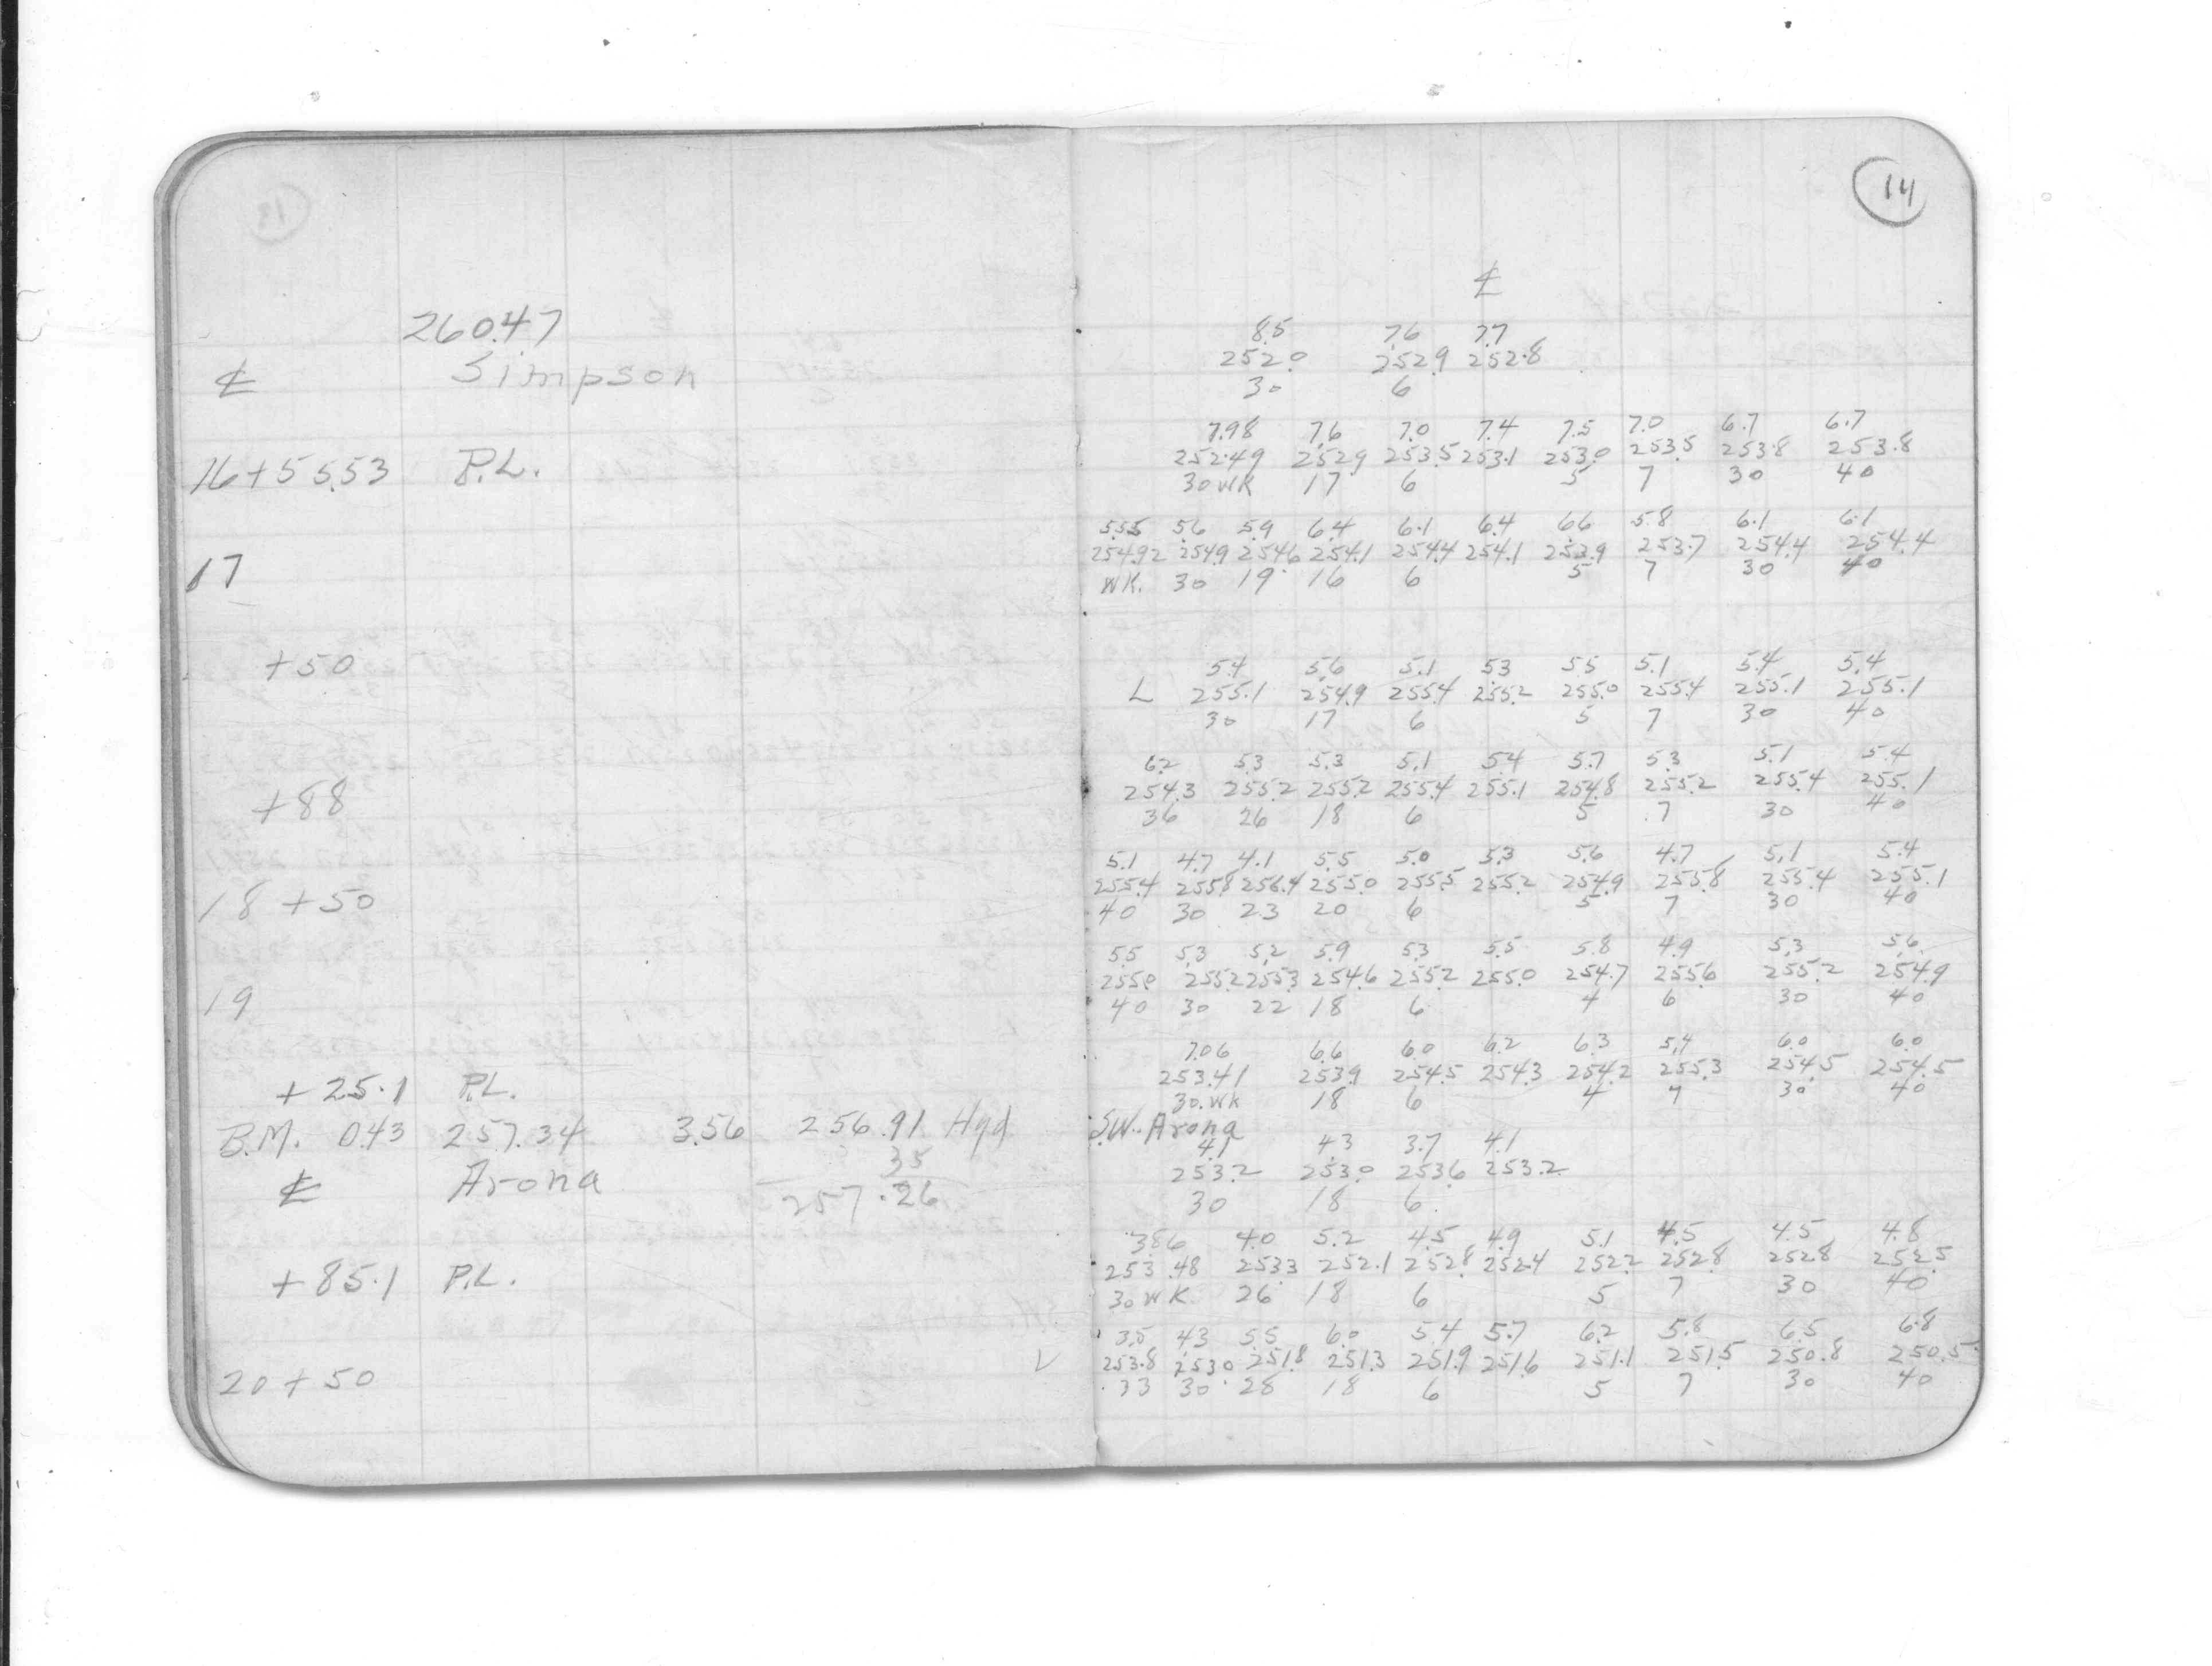 14
℄
260.47
8.5 7.6 7.7
252.0 252.9 252.8
℄ Simpson
30 6
7.98 7.6 7.0 7.4 7.5 7.0 6.7 6.7
16+55.53 P.L. 252.49 252.9 253.5 253.1 253.0 253.5 253.8 253.8
30 WK 17 6 5 7 30 40
5.55 5.6 5.9 6.4 6.1 6.4 6.6 5.8 6.1 6.1
17 254.92 254.9 254.6 254.1 254.4 254.1 253.9 253.7 254.4 254.4
WK. 30 19 16 6 5 7 30 40
5.4 5.6 5.1 5.3 5.5 5.1 5.4 5.4
+50 L 255.1 254.9 255.4 255.2 255.0 255.4 255.1 255.1
30 17 6 5 7 30 40
6.2 5.3 5.3 5.1 5.4 5.7 5.3 5.1 5.4
+88 254.3 255.2 255.2 255.4 255.1 254.8 255.2 255.4 255.1
36 26 18 6 5 7 30 40
5.1 4.7 4.1 5.5 5.0 5.3 5.6 4.7 5.1 5.4
18+50 255.4 255.8 256.4 255.0 255.5 255.2 254.9 255.8 255.4 255.1
40 30 23 20 6 5 7 30 40
5.5 5.3 5.2 5.9 5.3 5.5 5.8 4.9 5.3 5.6
19 255.0 255.2 255.3 254.6 255.2 255.0 254.7 255.6 255.2 254.9
40 30 22 18 6 4 6 30 40
7.06 6.6 6.0 6.2 6.3 5.4 6.0 6.0
+25.1 P.L. 253.41 253.9 254.5 254.3 254.2 255.3 254.5 254.5
30.WK 18 6 4 7 30 40
B.M. 0.43 257.34 3.56 256.91 Hyd S.W. Arona
35
4.1 4.3 3.7 4.1
℄ Arona 257.26 253.2 253.0 253.6 253.2
30 18 6
3.86 4.0 5.2 4.5 4.9 5.1 4.5 4.5 4.8
+85.1 P.L. 253.48 253.3 252.1 252.8 252.4 252.2 252.8 252.8 252.5
30 WK 26 18 6 5 7 30 40
3.5 4.3 5.5 6.0 5.4 5.7 6.2 5.8 6.5 6.8
20+50 L 253.8 253.0 251.8 251.3 251.9 251.6 251.1 251.5 250.8 250.5
33 30 28 18 6 5 7 30 40